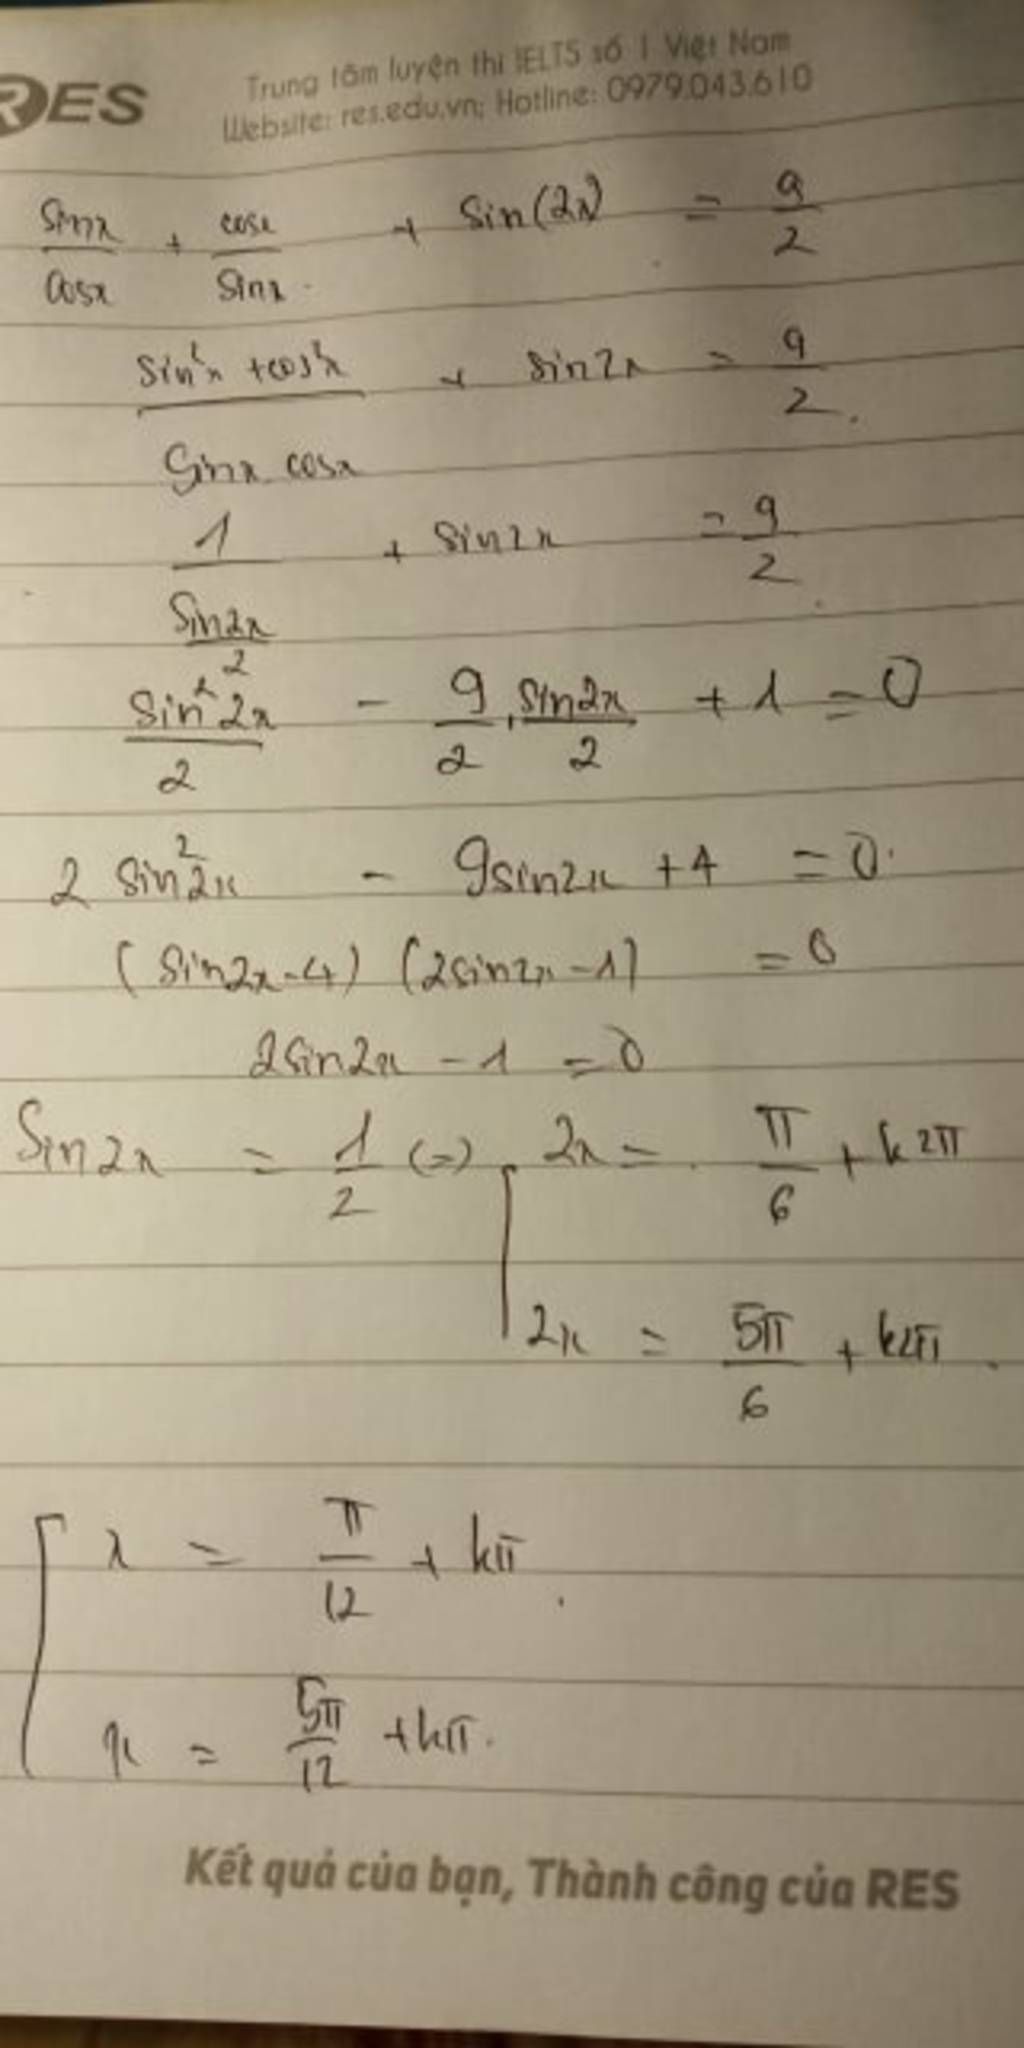 RES
Trung tâm luyện thi IELTS số 1 Việt Nam
Website: res.edu.vn; Hotline: 0979.043.610
sinx/cosx + cosx/sinx + sin(2x) = 9/2
(sin²x + cos²x)/(sinx cosx) + sin2x = 9/2.
1/(sin2x/2) + sin2x = 9/2
sin²2x/2 - 9/2 . sin2x/2 + 1 = 0
2 sin²2x - 9sin2x + 4 = 0
(sin2x - 4) (2sin2x - 1) = 0
2sin2x - 1 = 0
Sin2x = 1/2 (=) [ 2x = π/6 + k2π
2x = 5π/6 + k2π
[ x = π/12 + kπ.
x = 5π/12 + kπ.
Kết quả của bạn, Thành công của RES